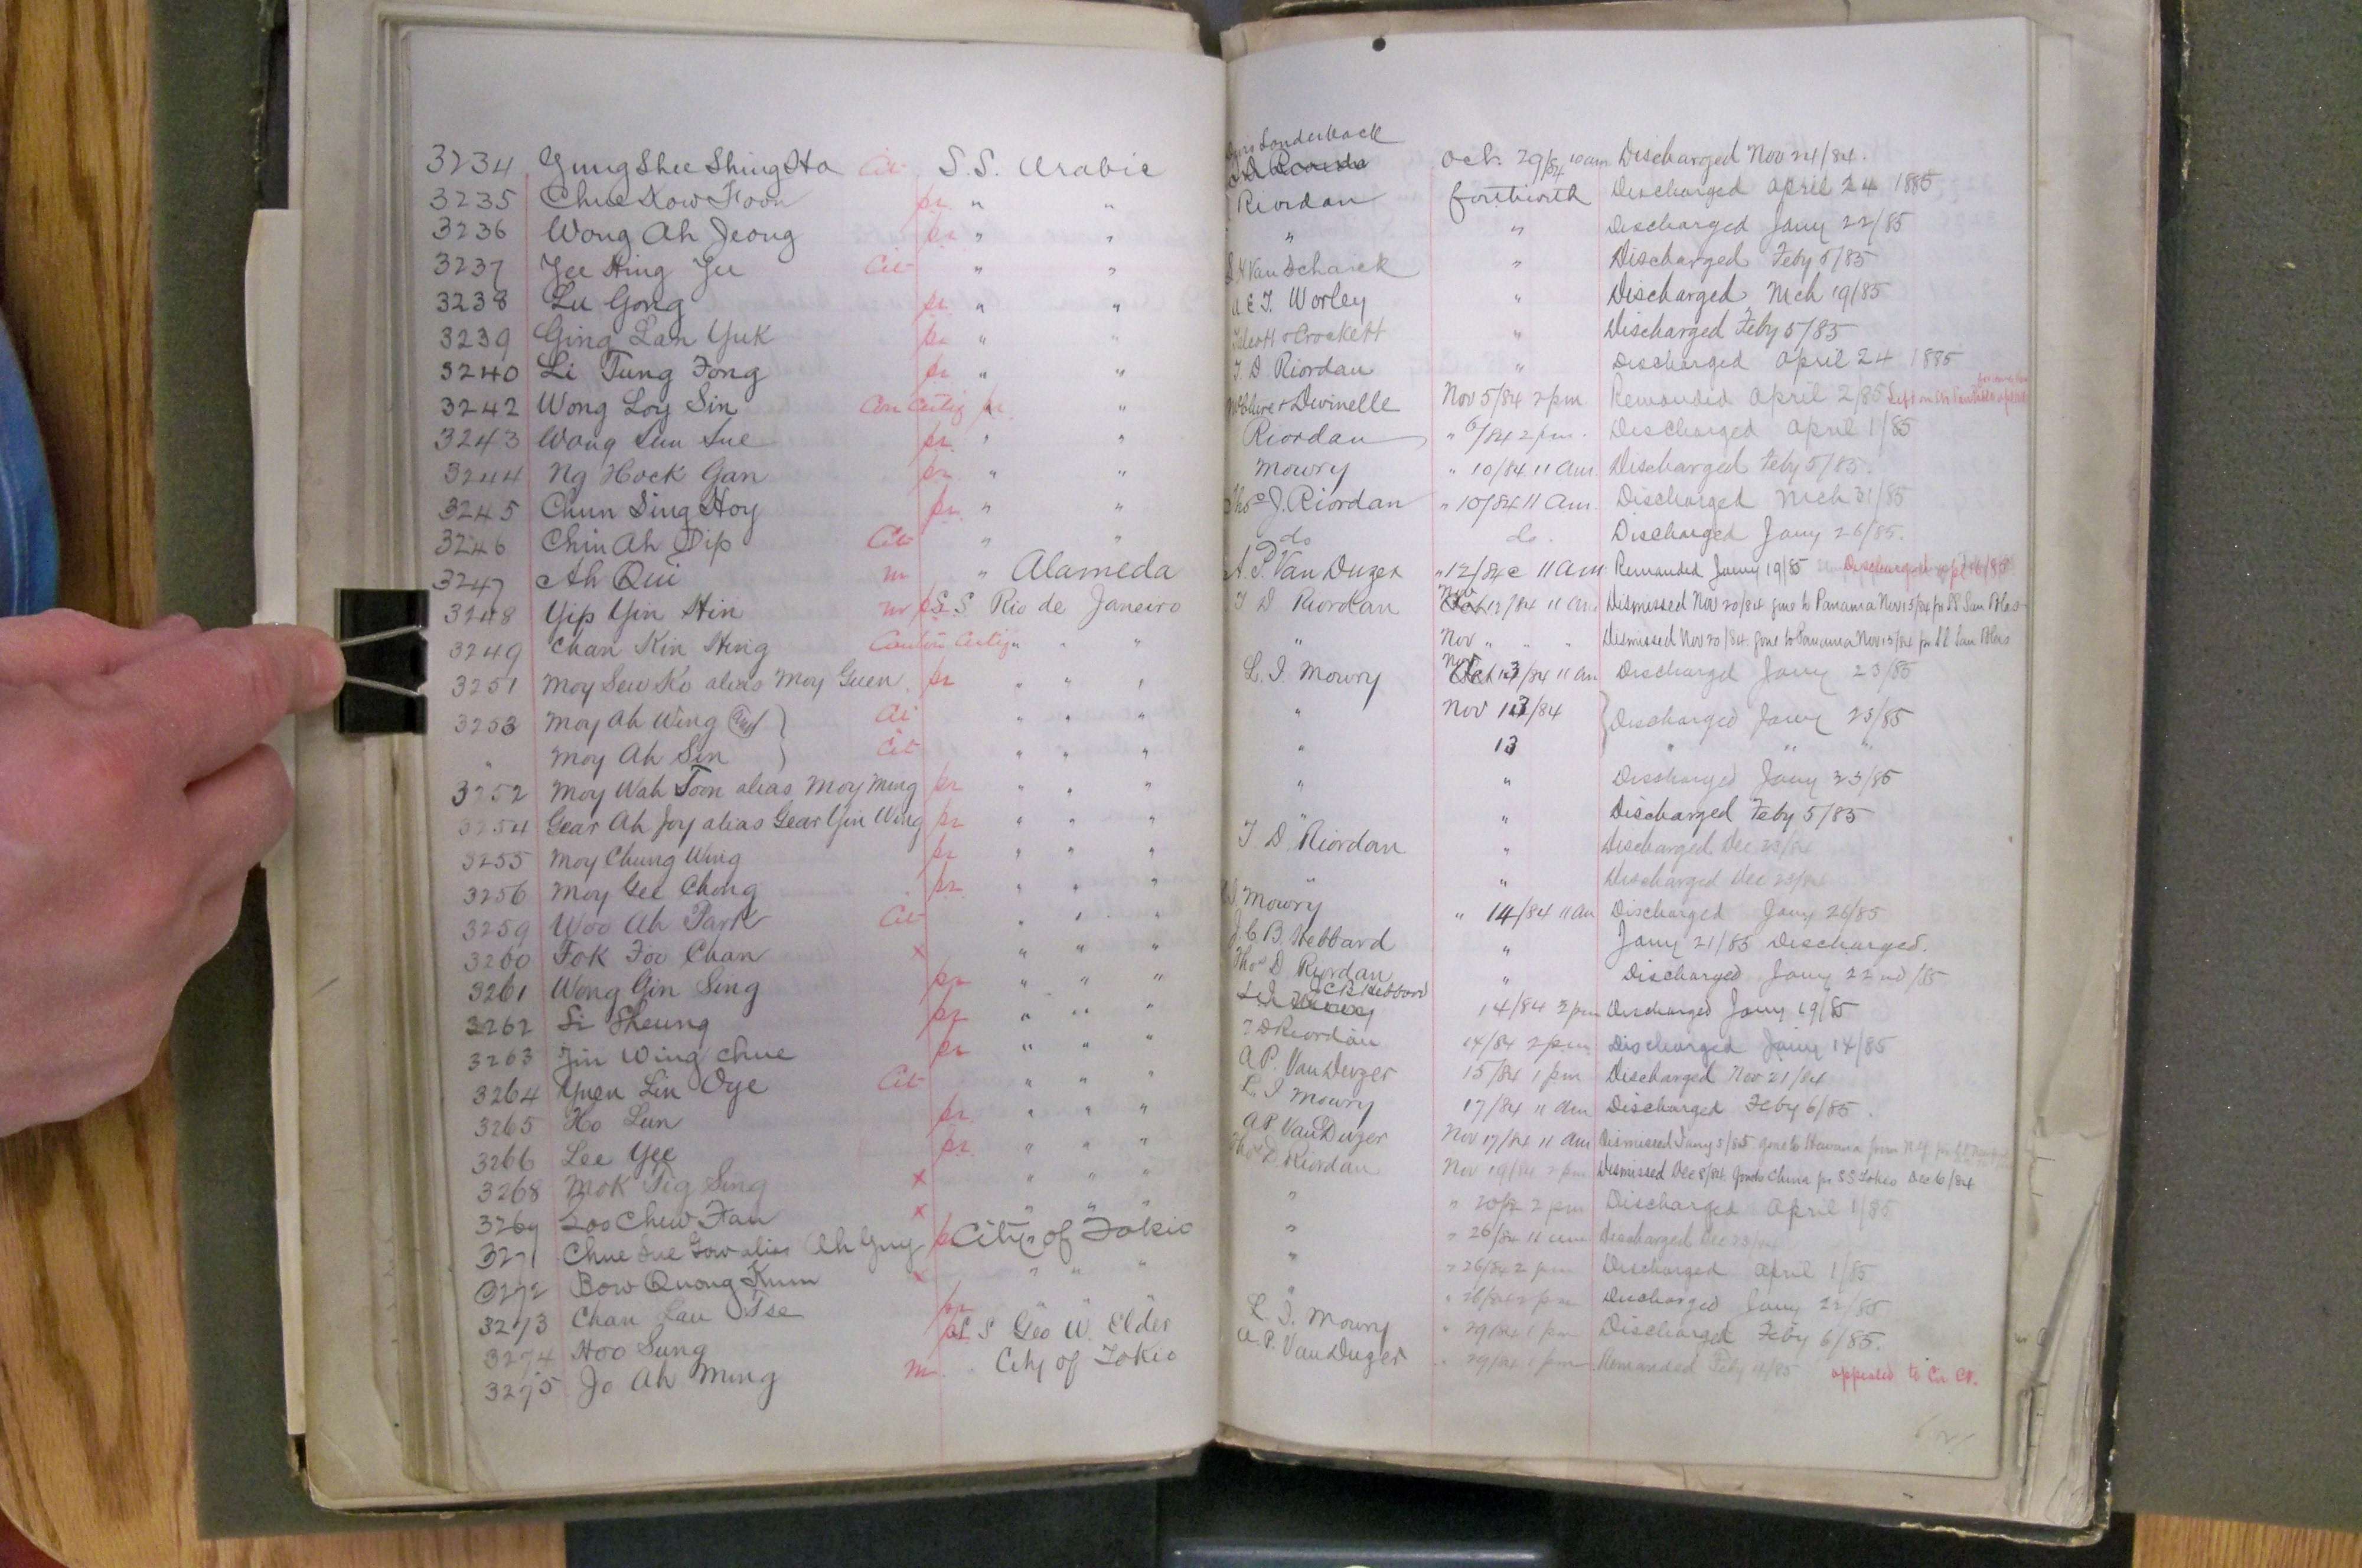 3234 Yung Shee Shing Ho Cit S.S. Arabic Louderback Oct. 29/84 10 am Discharged Nov 24/84.
3235 Chue Kow Foon pr " " Riordan forthwith Discharged April 24 1885
3236 Wong Ah Jeong pr " " " " Discharged Jany 22/85
3237 Yee Hing Yee Cit " " Van Schaick " Discharged Feby 5/85
3238 Lu Gong pr " " A E T. Worley " Discharged Mch 19/85
3239 Ging Lan Yuk pr " " & Crockett " Discharged Feby 5/85
3240 Li Tung Fong pr " " T. D Riordan " Discharged April 24 1885
3242 Wong Loy Sin Can Certif pr. " & Dwinelle Nov 5/84 2 pm Remanded April 2/85 Left on
3243 Wong Sun Sue pr " " Riordan " 6/84 2 pm. Discharged April 1/85
3244 Ng Hock Gan pr " " Mowry " 10/84 11 Am. Discharged Feby 5/85.
3245 Chun Sing Hoy pr " " Thos J. Riordan " 10/84 11 Am. Discharged Mch 31/85
3246 Chin Ah Dip Cit " " do do. Discharged Jany 26/85.
3247 Ah Qui m " Alameda A. P. Van Duzer " 12/84 11 am Remanded Jany 19/85 Discharged
3248 Yip Yin Hin m S S Rio de Janeiro T D Riordan Nov 12/84 11 am Dismissed Nov 20/84 gone to Panama Nov 15/84 pr SS San Blas
3249 Chan Kin Hing Canton Certif " " " " Nov " " " Dismissed Nov 20/84 gone to Panama Nov 15/84 pr SS San Blas
3251 Moy Sew Ko alias Moy Guen pr " " " L. I. Mowry Nov 13/84 11 am Discharged Jany 23/85
3253 Moy Ah Wing Cit " " " " Nov 13/84 Discharged Jany 23/85
" Moy Ah Sin Cit " " " " 13 " " "
3252 Moy Wah Toon alias Moy Ming pr " " " " " Discharged Jany 23/85
3254 Gear Ah Joy alias Gear Yin Wing pr " " " " " Discharged Feby 5/85
3255 Moy Chung Wing pr " " " T D. Riordan " Discharged Dec 23/84
3256 Moy Gee Chong pr " " " " " Discharged Dec 23/84
3259 Woo Ah Park Cit " " " Mowry " 14/84 11 Am Discharged Jany 26/85
3260 Fok Foo Chan x " " " J. C. B. Hebbard " Jany 21/85 Discharged.
3261 Wong Gin Sing pr " " " Thos D Riordan " Discharged Jany 22nd/85
3262 Li Sheung pr " " " J C B Hebbard 14/84 2 pm Discharged Jany 19/85
3263 Jin Wing Chue pr " " " T D Riordan 14/84 2 pm Discharged Jany 14/85
3264 Yuen Lin Oye Cit " " " A P. Van Duzer 15/84 1 pm Discharged Nov 21/84
3265 Ho Lun pr " " " L. I Mowry 17/84 11 am Discharged Feby 6/85.
3266 Lee Yee pr. " " " A P. Van Duzer Nov 17/84 11 Am Dismissed Jany 5/85 gone to Havana from N. Y. pr
3268 Mok Tig Sing x " " " Thos D Riordan Nov 19/84 2 pm Dismissed Dec 8/84 gone to China pr SS Tokio Dec 6/84
3269 Loo Chew Fan x " " " " " 20/84 2 pm Discharged April 1/85
3271 Chue Sue Gow alias Ah Guy pr City of Tokio " " 26/84 11 am Discharged Dec 23/84
3272 Bow Quong Kum x " " " " " 26/84 2 pm Discharged April 1/85
3273 Chan Lau Tse pr " " " " " 26/84 2 pm Discharged Jany 22/85
3274 Hoo Sung S S Geo W. Elder L. I. Mowry " 29/84 1 pm Discharged Feby 6/85.
3275 Jo Ah Ming m City of Tokio A. P. Van Duzer " 29/84 1 pm Remanded Feby /85 appealed to Cir Ct.